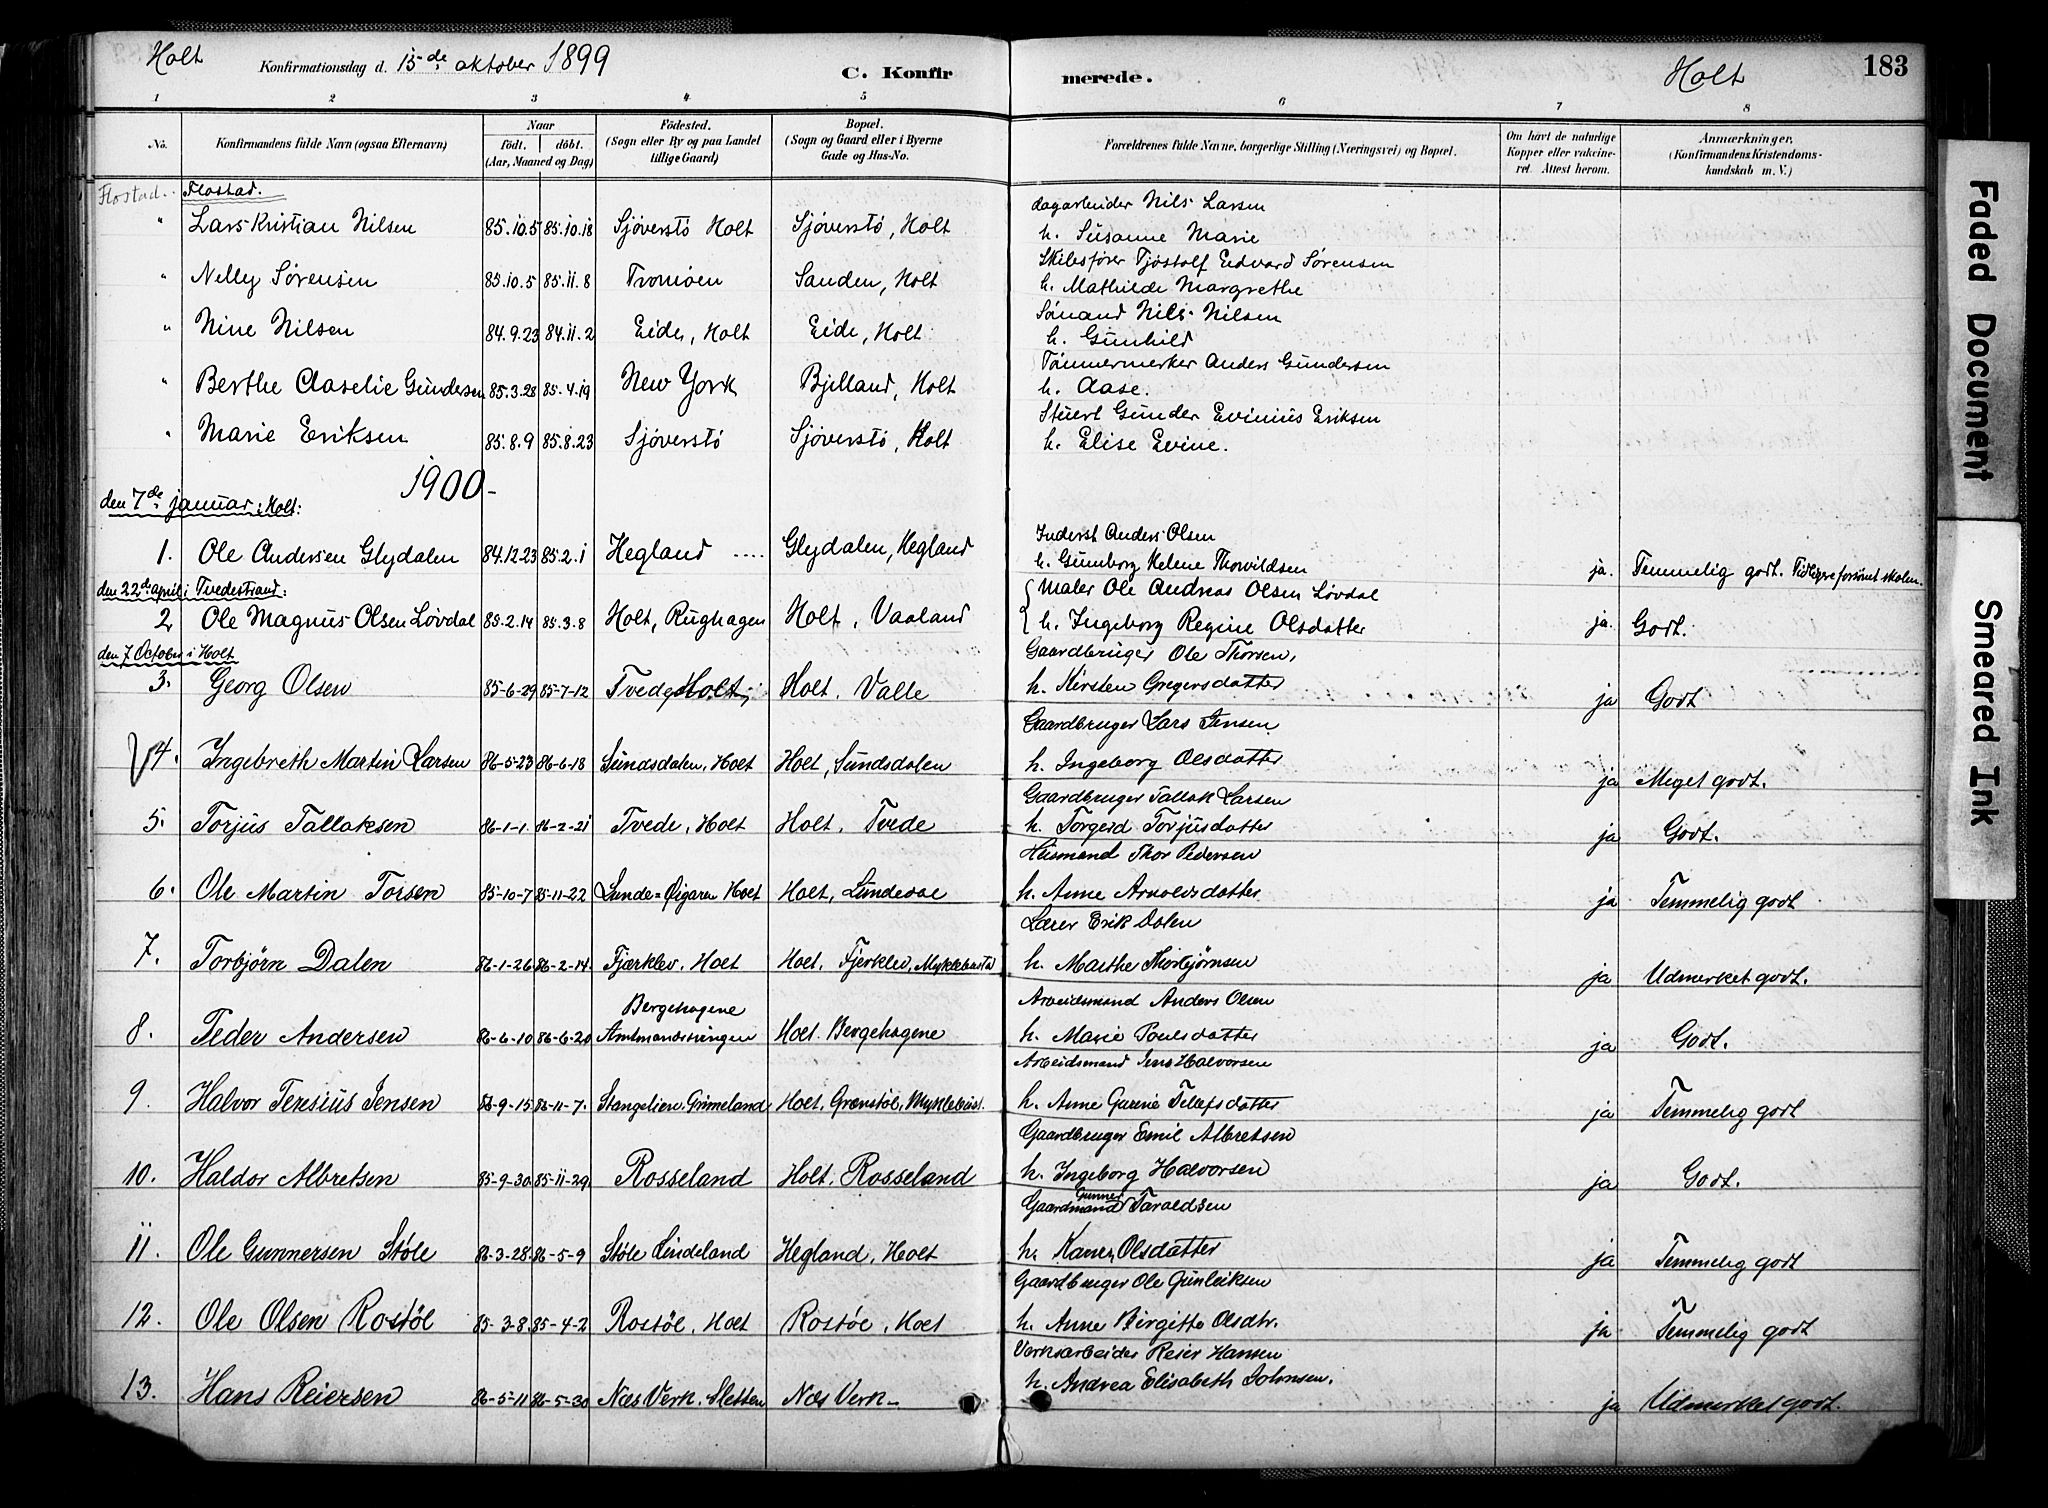 Holt Konfirmationsdag d. 15de oktober 1899 C. Konfirmerede. Holt 183
1 2 3 4 5 6 7 8
No. Konfirmandens fulde Navn (ogsaa Efternavn) Naar født. døbt. (Aar, Maaned og Dag) Fødested. (Sogn eller By og paa Landet tillige Gaard) Bopæl. (Sogn og Gaard eller i Byerne Gade og Hus-No. Forældrenes fulde Navne, borgerlige Stilling (Næringsvei) og Bopæl. Om havt de naturlige Kopper eller vakcineret. Attest herom. Anmærkninger. (Konfirmandens Kristendomskundskab m. V.)
Flostad. Flostad.
dagarbeider Nils Larsen
" Lars Kristian Nilsen 85.10.5 85.10.18 Sjøverstø Holt Sjøverstø, Holt h. Susanne Marie
Skibsfører Tjøstolf Edvard Sørensen
" Nelly Sørensen 85.10.5 85.11.8 Tromøen Sanden, Holt h. Mathilde Margrethe
Sømand Nils Nilsen
" Nine Nilsen 84.9.23 84.11.2 Eide, Holt Eide, Holt h. Gunhild
Tømmermerker Anders Gundersen
" Berthe Aaselie Gundersen 85.3.28 85.4.19 New York Bjelland, Holt h. Aase.
Stuert Gunder Evinius Eriksen
" Marie Eriksen 85.8.9 85.8.23 Sjøverstø Sjøverstø, Holt h. Elise Evine.
1900-
den 7de januar i Holt:
Inderst Anders Olsen
1. Ole Andersen Glydalen 84.12.23 85.2.1 Hegland .... Glydalen, Hegland h. Gumborg Helene Thorvildsen ja. Temmelig godt. Tidligere forsømt skolen.
den 22de april i Tvedestrand:
Maler Ole Andreas Olsen Løvdal
2 Ole Magnus Olsen Løvdal 85.2.14 85.3.8 Holt, Rughagen Holt, Vaaland h. Ingeborg Regine Olsdatter ja. Godt.
den 7 October i Holt
Gaardbruger Ole Thorsen,
3. Georg Olsen 85-6-29 85-7-12 Tvede, Holt, Holt. Valle h. Kirsten Gregersdatter ja Godt
Gaardbruger Lars Jensen
4. Ingebreth Martin Larsen 86-5-23 86-6-18 Sundsdalen. Holt Holt, Sundsdalen h. Ingeborg Olsdatter ja Meget godt.
Gaardbruger Tallak Larsen
5. Torjus Tallaksen 86-1-1. 86-2-21 Tvede. Holt Holt. Tvede h. Torgerd Torjusdatter ja Godt.
Husmand Thor Pedersen
6. Ole Martin Torsen 85-10-7 85-11-22 Lunde=Øigaren Holt Holt, Lundeval h. Anne Arnoldsdatter ja Temmelig godt
Lærer Erik Dalen
7. Torbjørn Dalen 86-1-26 86-2-14. Fjærklev. Holt Holt. Fjerklev, Myklebostad h. Marthe Thorbjørnsen ja Udmerket godt.
Bergehagene Arbeidsmand Anders Olsen
8. Peder Andersen 86-6-10 86-6-20 Amtmandsvingen Holt. Bergehagene h. Marie Poulsdatter ja Godt.
Arbeidsmand Jens Halvorsen
9. Halvor Teresius Jensen 86-9-15 86-11-7. Stangelien. Grimeland Holt. Grønstøl, Myklebust. h. Anne Gurine Tellefsdatter ja Temmelig godt
Gaardbruger Emil Albretsen
10. Haldor Albretsen 85-9-30 85-11-29 Rosseland Holt. Rosseland h. Ingeborg Halvorsen ja Godt.
Gaardmand Gunner Taraldsen
11. Ole Gunnersen Støle 86-3-28 86-5-9 Støle Lindeland Hegland. Holt h. Karen Olsdatter ja Temmelig godt
Gaardbruger Ole Gunleiksen
12. Ole Olsen Rostøl 85-3-8 85-4-2 Rostøl. Holt Rostøl. Holt h. Anne Birgitte Olsdtr. ja Temmelig godt
Verksarbeider Reier Hansen
13. Hans Reiersen 86-5-11 86-5-30 Næs Verk. Sletten Næs Verk- h. Andrea Elisabeth Johnsen. ja Udmerket godt.
Faded Document
Smeared Ink